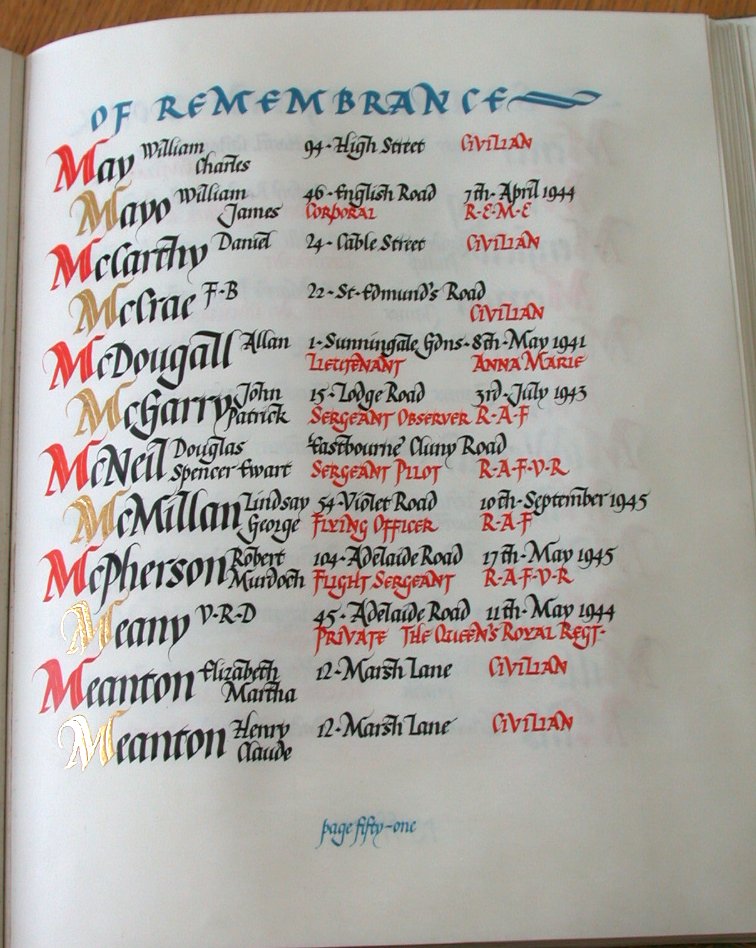 OF REMEMBRANCE
May William Charles 94·High Street CIVILIAN
Mayo William James 46·English Road 7th·April 1944
CORPORAL R·E·M·E
McCarthy Daniel 24·Cable Street CIVILIAN
McCrae F·B 22·St·Edmund's Road
CIVILIAN
McDougall Allan 1·Sunningale Gdns·8th·May 1941
LIEUTENANT ANNA MARIE
McGarry John Patrick 15·Lodge Road 3rd·July 1943
SERGEANT OBSERVER R·A·F
McNeil Douglas Spencer Ewart Eastbourne Cluny Road
SERGEANT PILOT R·A·F·V·R
McMillan Lindsay George 54·Violet Road 10th·September 1945
FLYING OFFICER R·A·F
McPherson Robert Murdoch 104·Adelaide Road 17th·May 1945
FLIGHT SERGEANT R·A·F·V·R
Meany V·R·D 45·Adelaide Road 11th·May 1944
PRIVATE THE QUEEN'S ROYAL REGT·
Meanton Elizabeth Martha 12·Marsh Lane CIVILIAN
Meanton Henry Claude 12·Marsh Lane CIVILIAN
page fifty-one